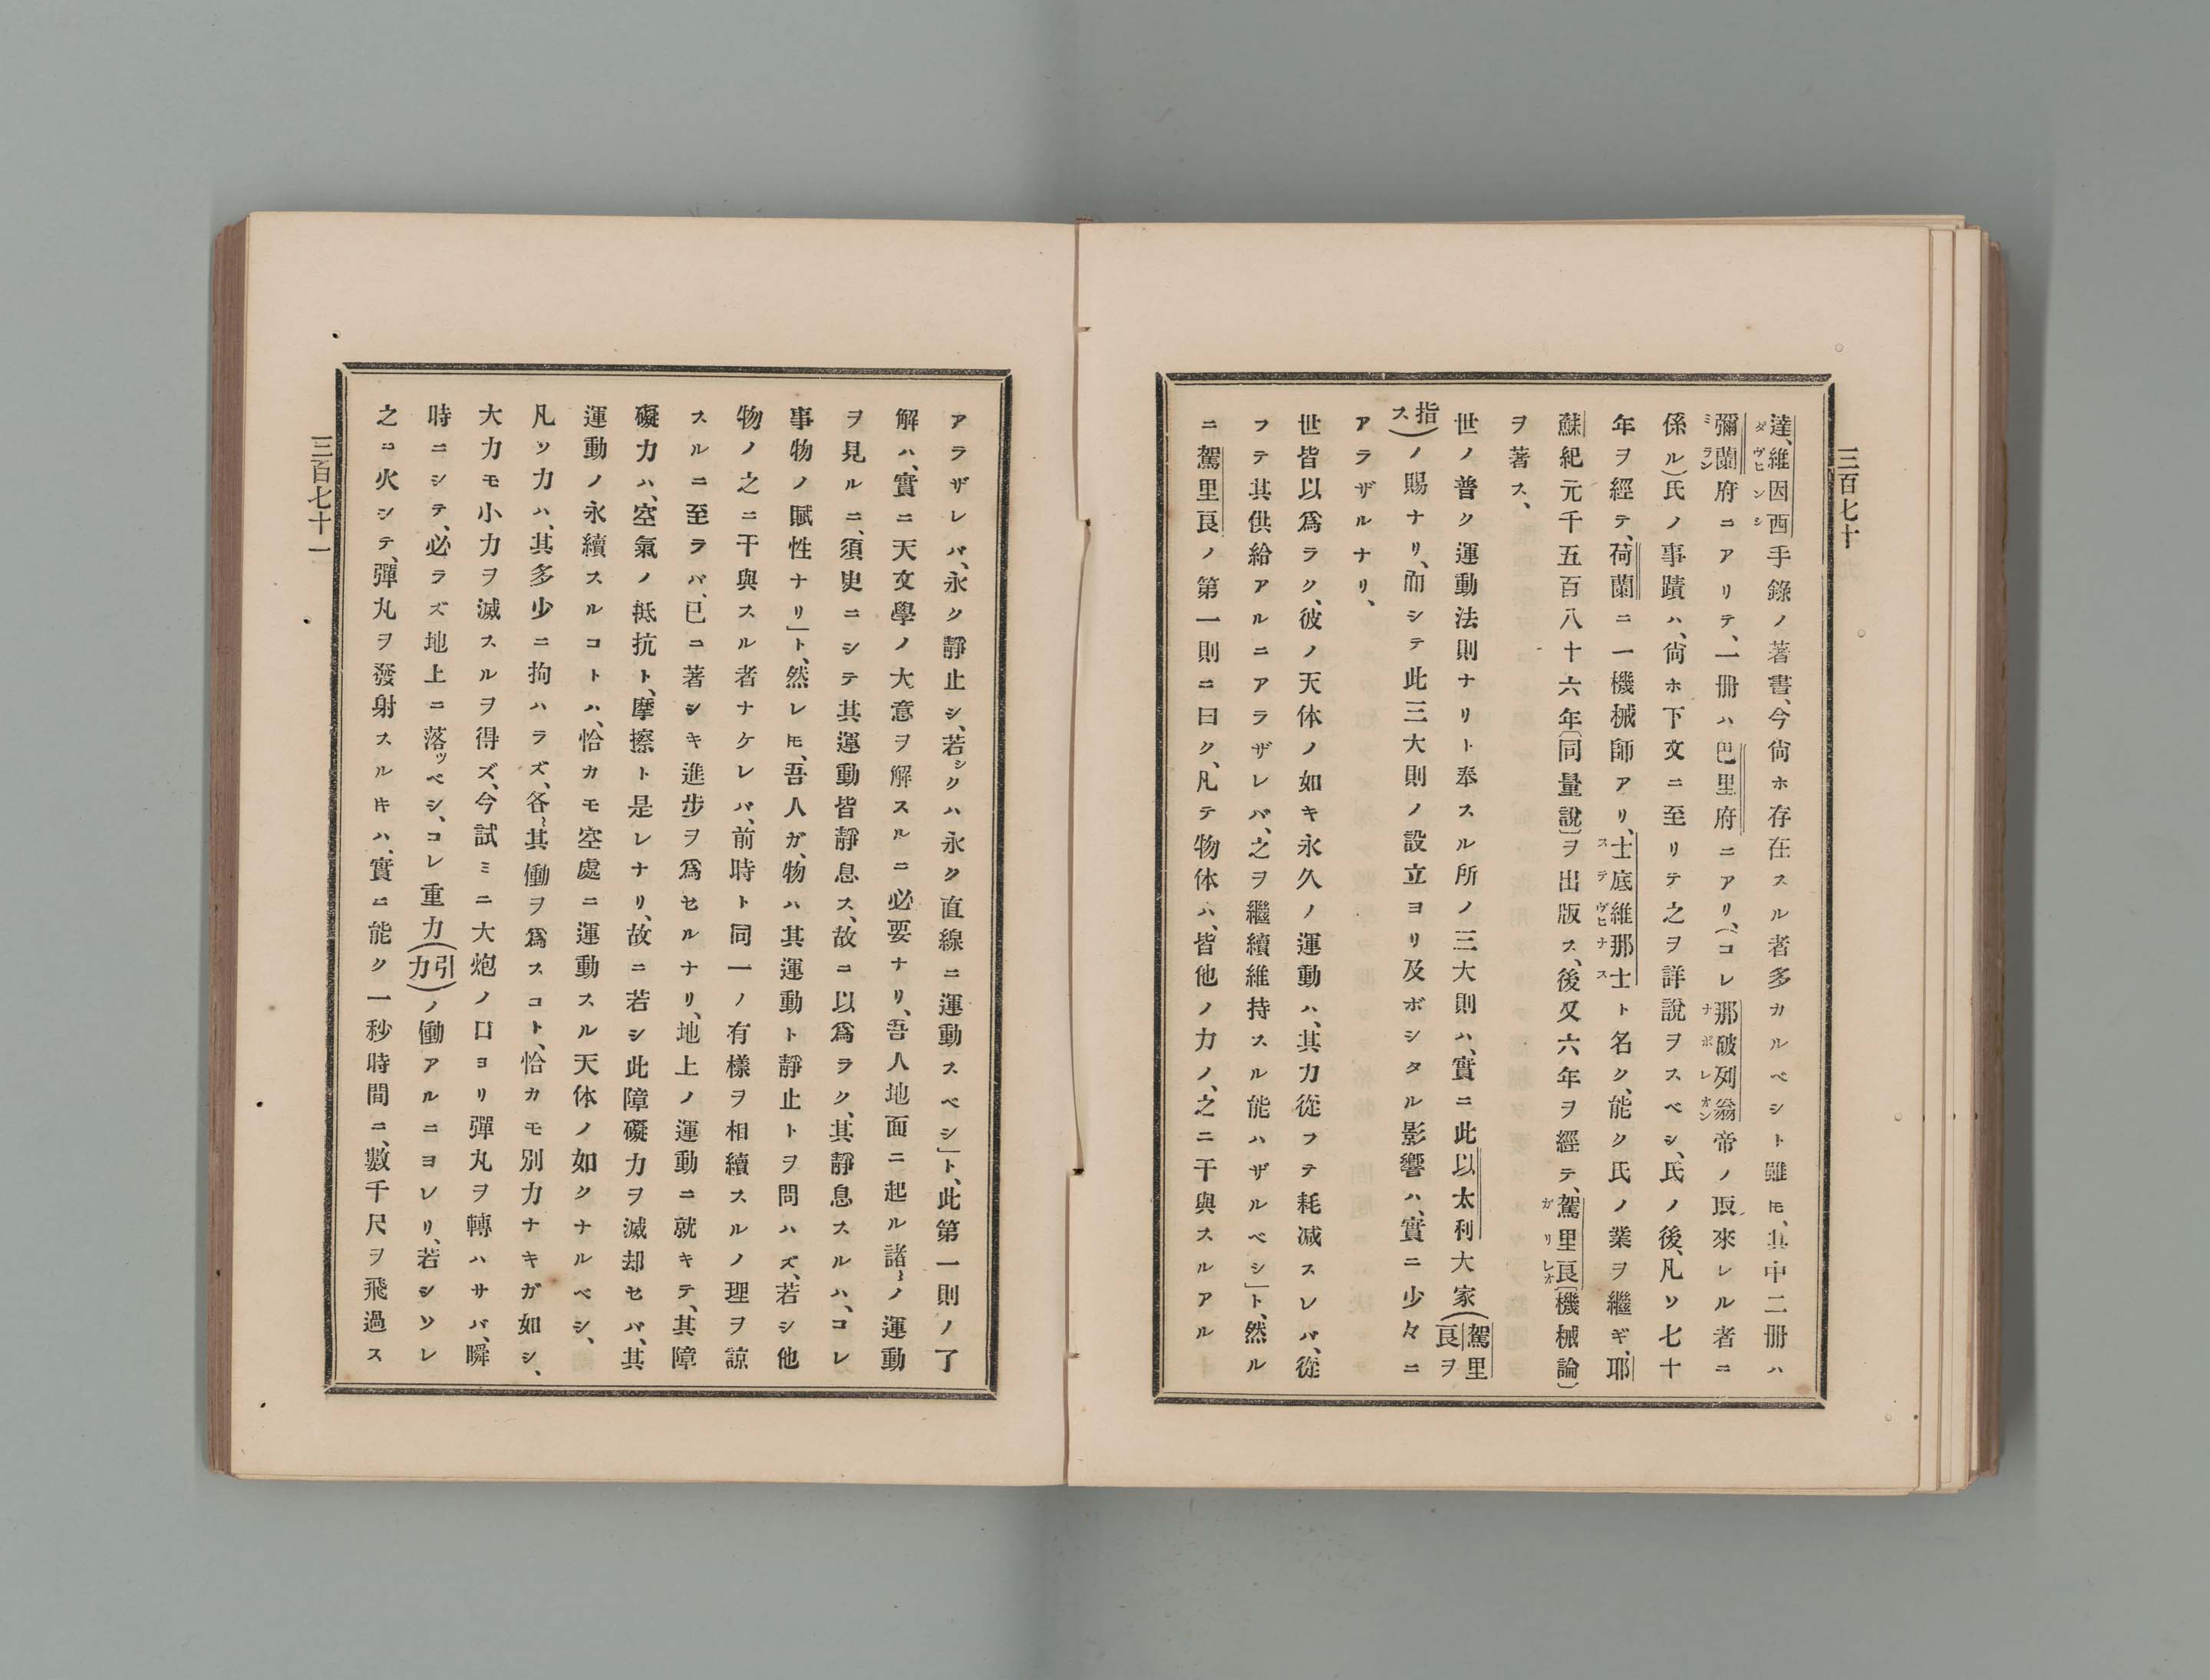 三百七十
達、維因西手錄ノ著書、今尙ホ存在スル者多カルベシト雖𪜈、其中二冊ハ
ダ ヴヒンシ
彌蘭府ニアリテ、一冊ハ巴里府ニアリ、(コレ那破列翁帝ノ取來レル者ニ
ミラン ナポレオン
係ル)氏ノ事蹟ハ、尙ホ下文ニ至リテ之ヲ詳說ヲスベシ、氏ノ後、凡ソ七十
年ヲ經テ、荷蘭ニ一機械師アリ、士底維那士ト名ク、能ク氏ノ業ヲ繼ギ、耶
ステヴヒナス
蘇紀元千五百八十六年〔同量說〕ヲ出版ス、後又六年ヲ經テ、駕里良〔機械論〕
ガリレオ
ヲ著ス、
世ノ普ク運動法則ナリト奉スル所ノ三大則ハ、實ニ此以太利大家(駕里良ヲ
指ス)ノ賜ナリ、而シテ此三大則ノ設立ヨリ及ボシタル影響ハ、實ニ少々ニ
アラザルナリ、
世皆以爲ラク、彼ノ天体ノ如キ永久ノ運動ハ、其力從フテ耗减スレバ、從
フテ其供給アルニアラザレバ、之ヲ繼續維持スル能ハザルベシ」ト、然ル
ニ駕里良ノ第一則ニ曰ク、凡テ物体ハ、皆他ノ力ノ、之ニ干與スルアルニ
三百七十一
アラザレバ、永ク靜止シ、若シクハ永ク直線ニ運動スベシ」ト、此第一則ノ了
解ハ、實ニ天文學ノ大意ヲ解スルニ必要ナリ、吾人地面ニ起ル諸〻ノ運動
ヲ見ルニ、須史ニシテ其運動皆靜息ス、故ニ以爲ラク、其靜息スルハ、コレ
事物ノ賦性ナリ」ト、然レ𪜈、吾人ガ、物ハ其運動ト靜止トヲ問ハズ、若シ他
物ノ之ニ干與スル者ナケレバ、前時ト同一ノ有樣ヲ相續スルノ理ヲ諒
スルニ至ラバ、已ニ著シキ進步ヲ爲セルナリ、地上ノ運動ニ就キテ、其障
礙力ハ、空氣ノ抵抗ト、摩擦ト是レナリ、故ニ若シ此障礙力ヲ滅却セバ、其
運動ノ永續スルコトハ、恰カモ空處ニ運動スル天体ノ如クナルベシ、
凡ソ力ハ、其多少ニ拘ハラズ、各〻其働ヲ爲スコト、恰カモ別力ナキガ如シ、
大力モ小力ヲ滅スルヲ得ズ、今試ミニ大炮ノ口ヨリ彈丸ヲ轉ハサバ、瞬
時ニシテ、必ラズ地上ニ落ツベシ、コレ重力(引力)ノ働アルニヨレリ、若シソレ
之ニ火シテ、彈丸ヲ發射スル𪜈ハ、實ニ能ク一秒時間ニ、數千尺ヲ飛過ス